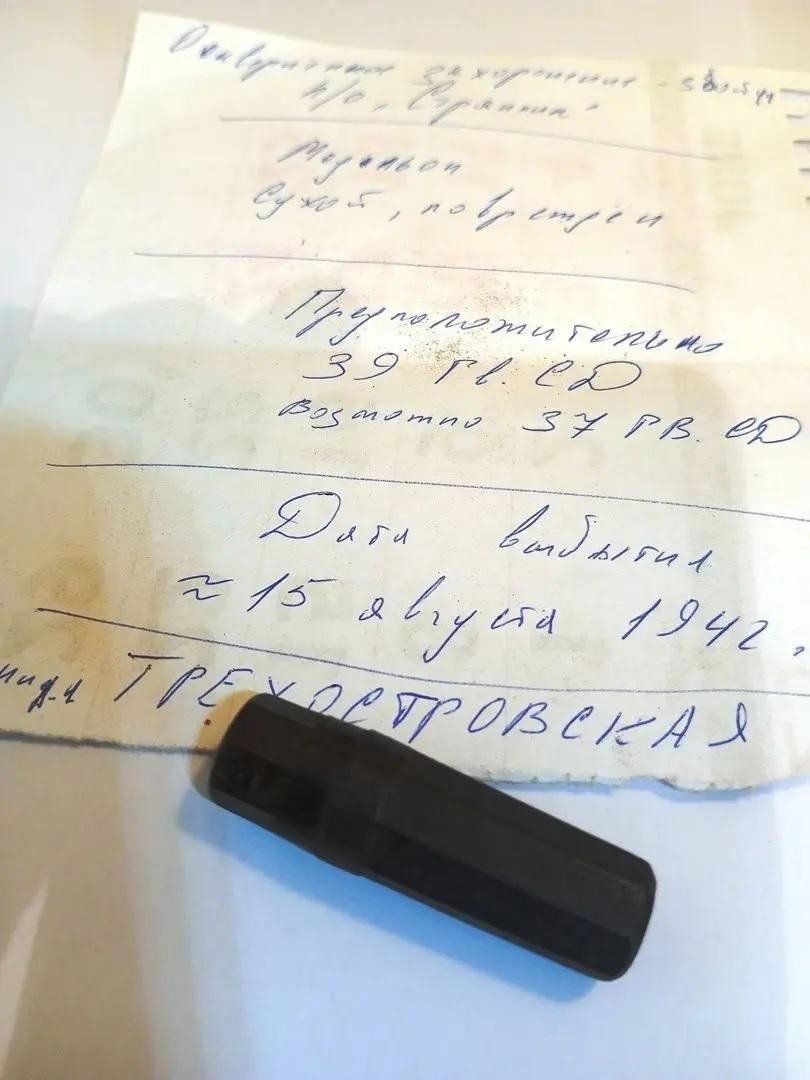 захоронение - 5 бойцов
п/о „Странник"
Медальон
Сухой, поврежден
Предположительно
39 Гв. СД
Возможно 37 ГВ. СД
Дата выбытия
≈ 15 августа 1942.
ТРЕХОСТРОВСКАЯ